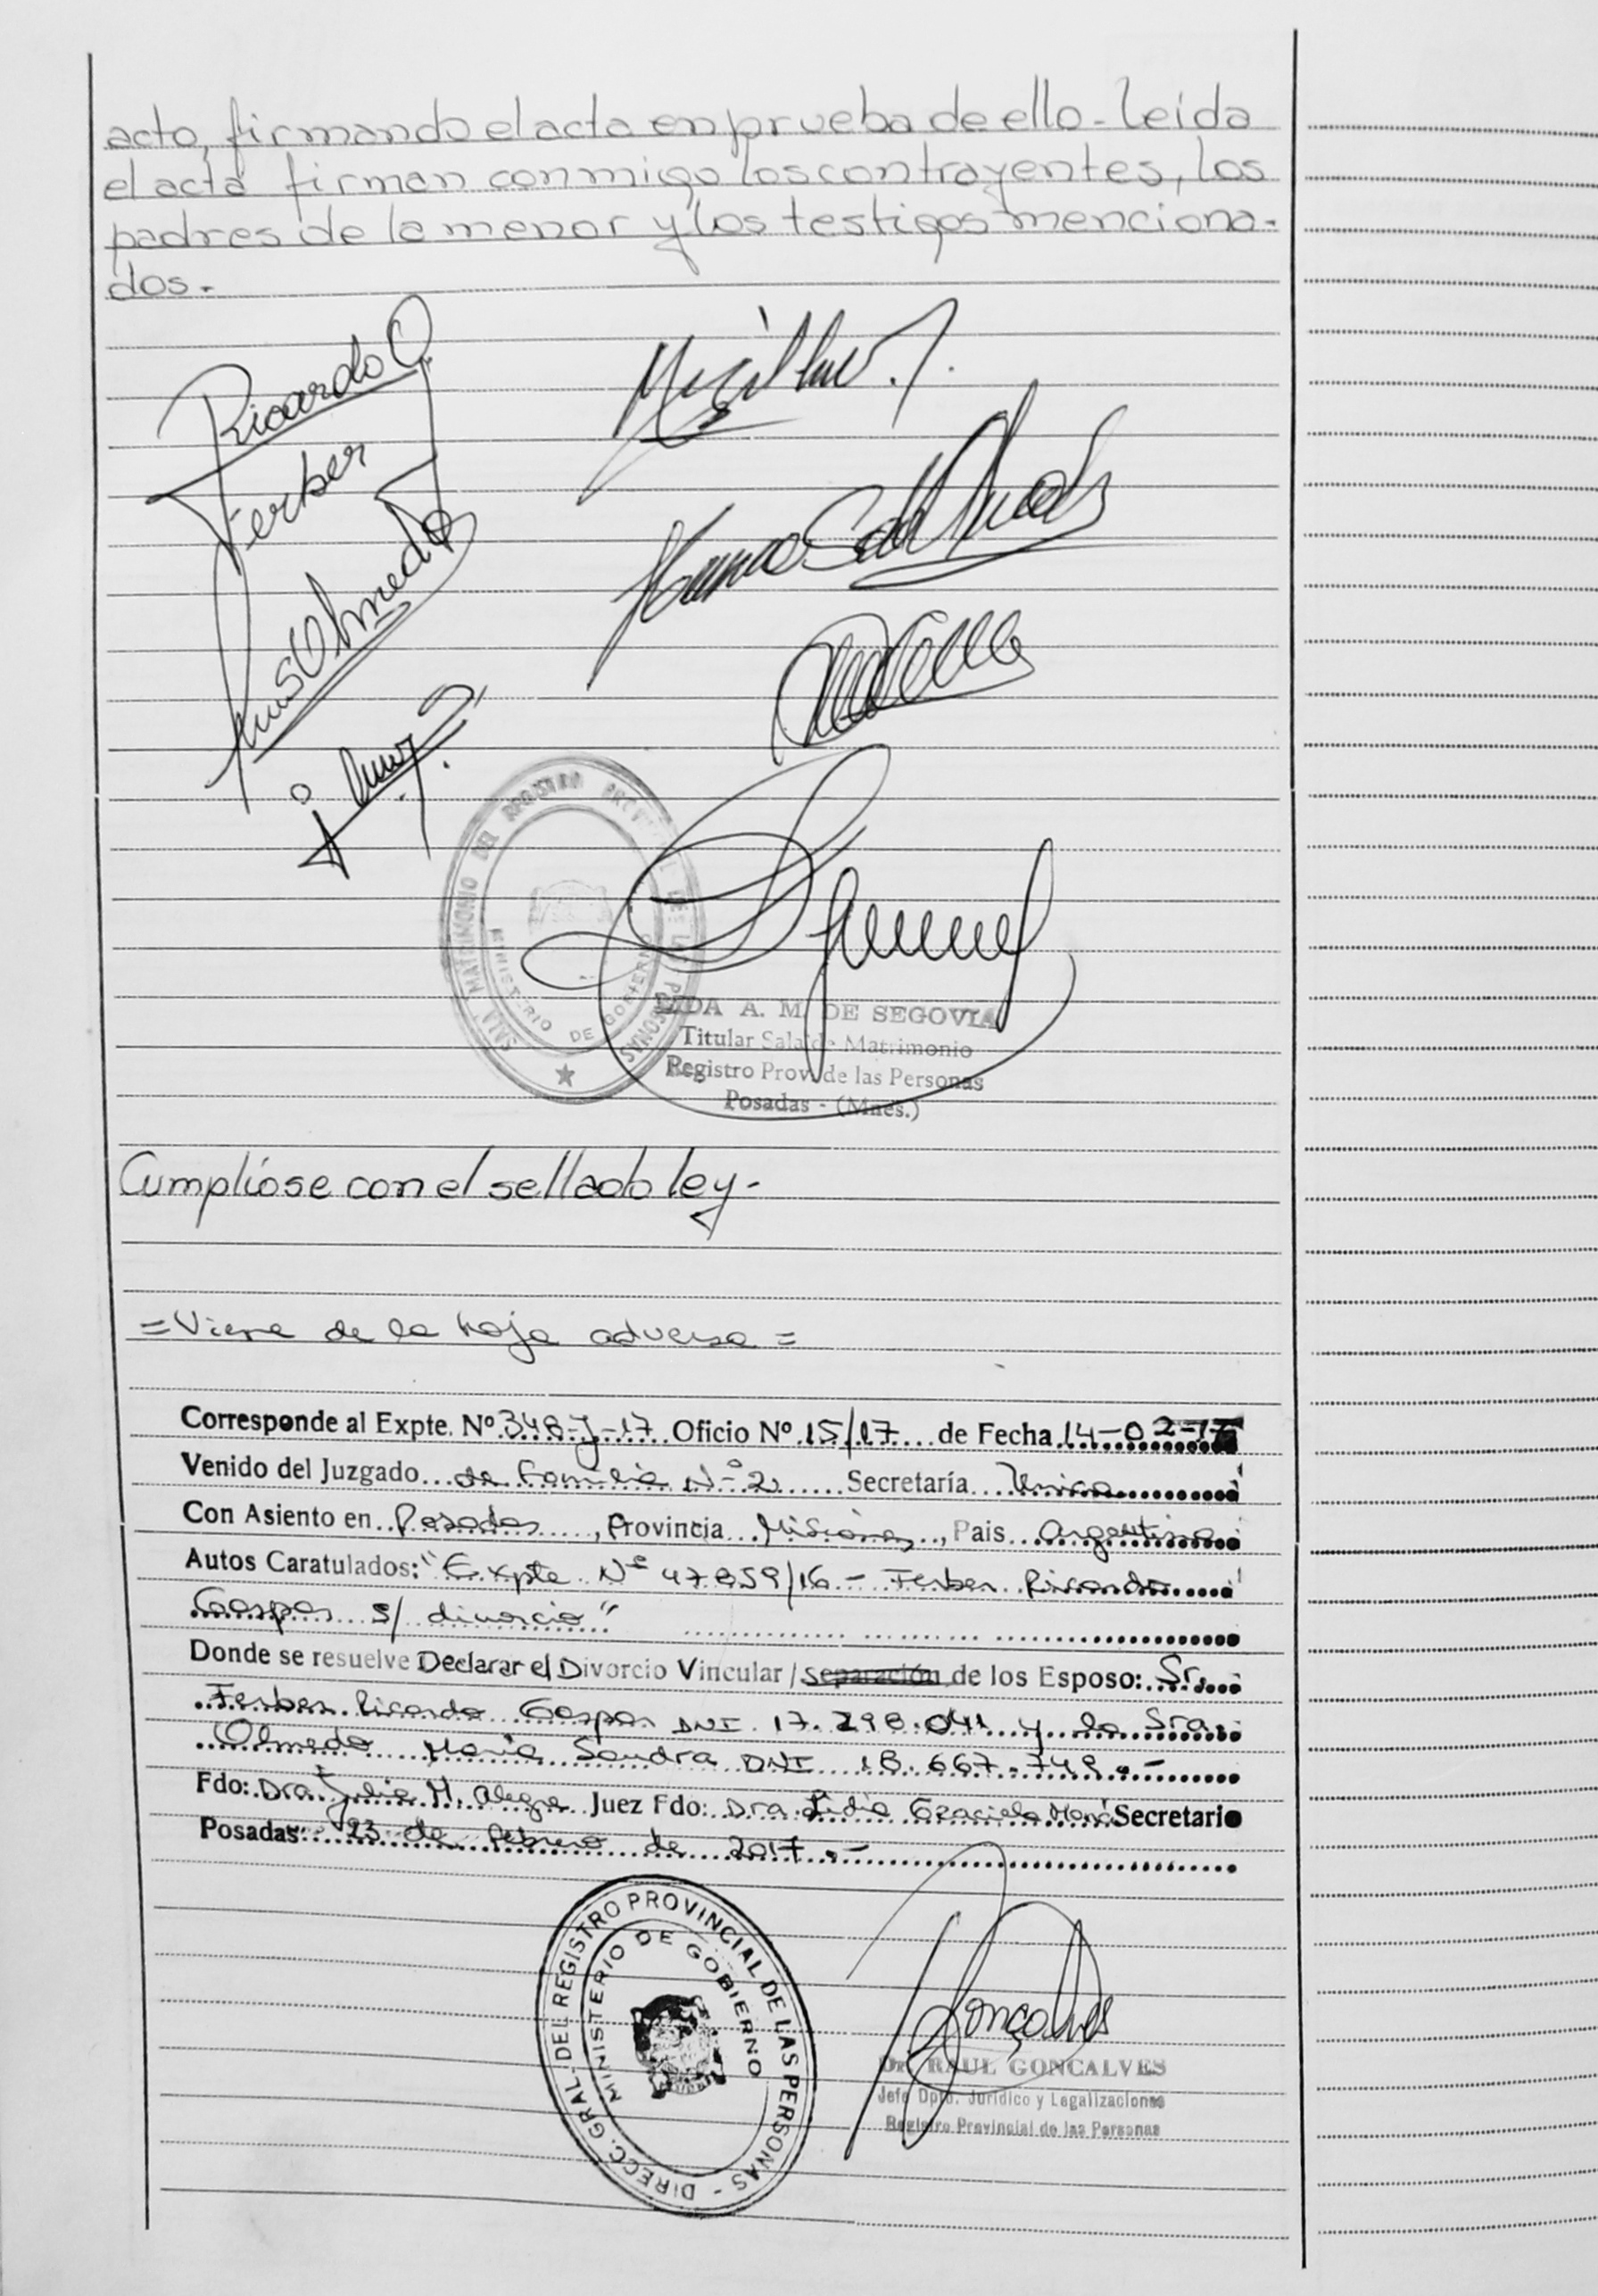 acto, firmando el acta en prueba de ello - leída
el acta firman conmigo los contrayentes, los
padres de la menor y los testigos menciona-
dos.-
Ricardo G.
Ferber
Olmedo
SALA MATRIMONIO DEL REGISTRO PROVINCIAL DE LAS PERSONAS
MINISTERIO DE GOBIERNO
A. M. DE SEGOVIA
Titular Sala de Matrimonio
Registro Prov. de las Personas
Posadas - (Mnes.)
Cumplióse con el sellado ley.-
= Viene de la hoja adversa =
Corresponde al Expte. Nº 348-J-17 Oficio Nº 15/17 de Fecha 14-02-17
Venido del Juzgado de Familia Nº 2 Secretaría Unica
Con Asiento en Posadas, Provincia Misiones, Pais Argentina
Autos Caratulados: "Expte Nº 47859/16 - Ferber Ricardo
Gaspar s/ divorcio"
Donde se resuelve Declarar el Divorcio Vincular / Separación de los Esposo: Sr.
Ferber Ricardo Gaspar DNI 17.298.041 y la Sra.
Olmedo María Sandra DNI 18.667.749.-
Fdo: Dra Julia M. Alegre Juez Fdo: Dra. Lidia Graciela Secretario
Posadas: 23 de febrero de 2017.-
DIRECC. GRAL. DEL REGISTRO PROVINCIAL DE LAS PERSONAS -
MINISTERIO DE GOBIERNO
Gonçalves
Dr. RAUL GONCALVES
Jefe Dpto. Jurídico y Legalizaciones
Registro Provincial de las Personas